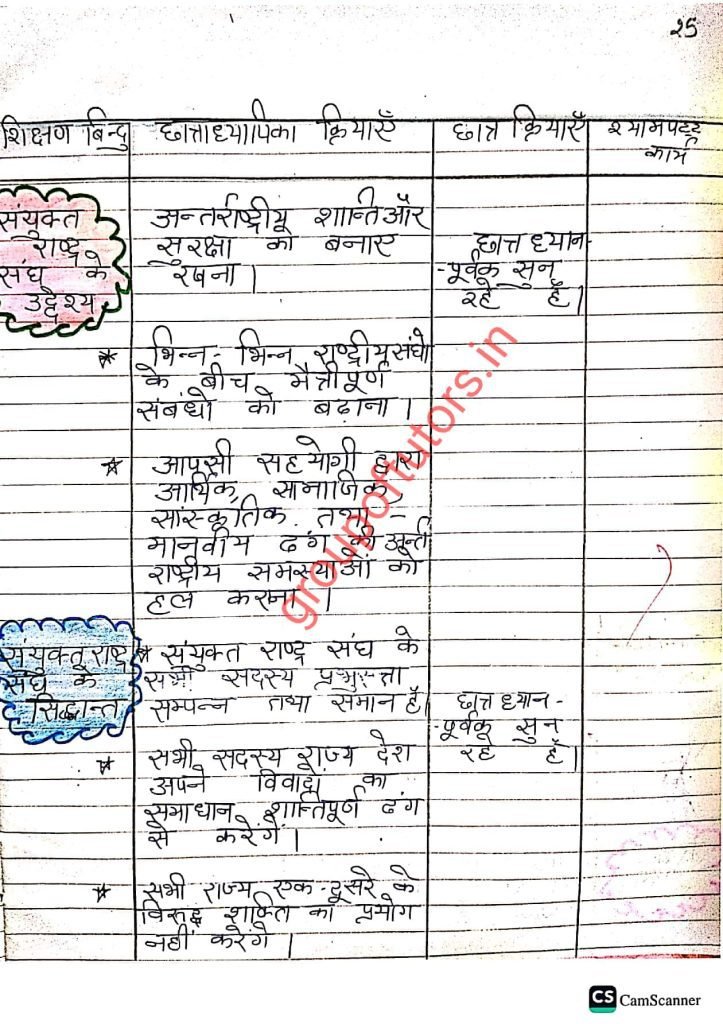 २5
शिक्षण बिन्दु
छात्राध्यापिका क्रियाएँ
छात्र क्रियाएँ
श्यामपट्ट
कार्य
संयुक्त
राष्ट्र
संघ के
उद्देश्य
अन्तर्राष्ट्रीय शान्ति और
सुरक्षा को बनाए
रखना।
छात्र ध्यान-
-पूर्वक सुन
रहे हैं।
* भिन्न-भिन्न राष्ट्रीय संघो
के बीच मैत्रीपूर्ण
संबंधो को बढाना।
* आपसी सहयोगी द्वारा
आर्थिक, सामाजिक,
सांस्कृतिक तथा -
मानवीय ढंग की अन्त
राष्ट्रीय समस्याओं को
हल करना।
संयुक्त राष्ट्र
संघ के
सिद्धान्त
* संयुक्त राष्ट्र संघ के
सभी सदस्य प्रभुसत्ता
सम्पन्न तथा समान हैं।
छात्र ध्यान-
-पूर्वक सुन
रहे हैं।
* सभी सदस्य राज्य देश
अपने विवादो का
समाधान शान्तिपूर्ण ढंग
से करेंगें।
* सभी राज्य एक-दूसरे के
विरुद्ध शक्ति का प्रयोग
नहीं करेंगे।
groupoftutors.in
CS CamScanner